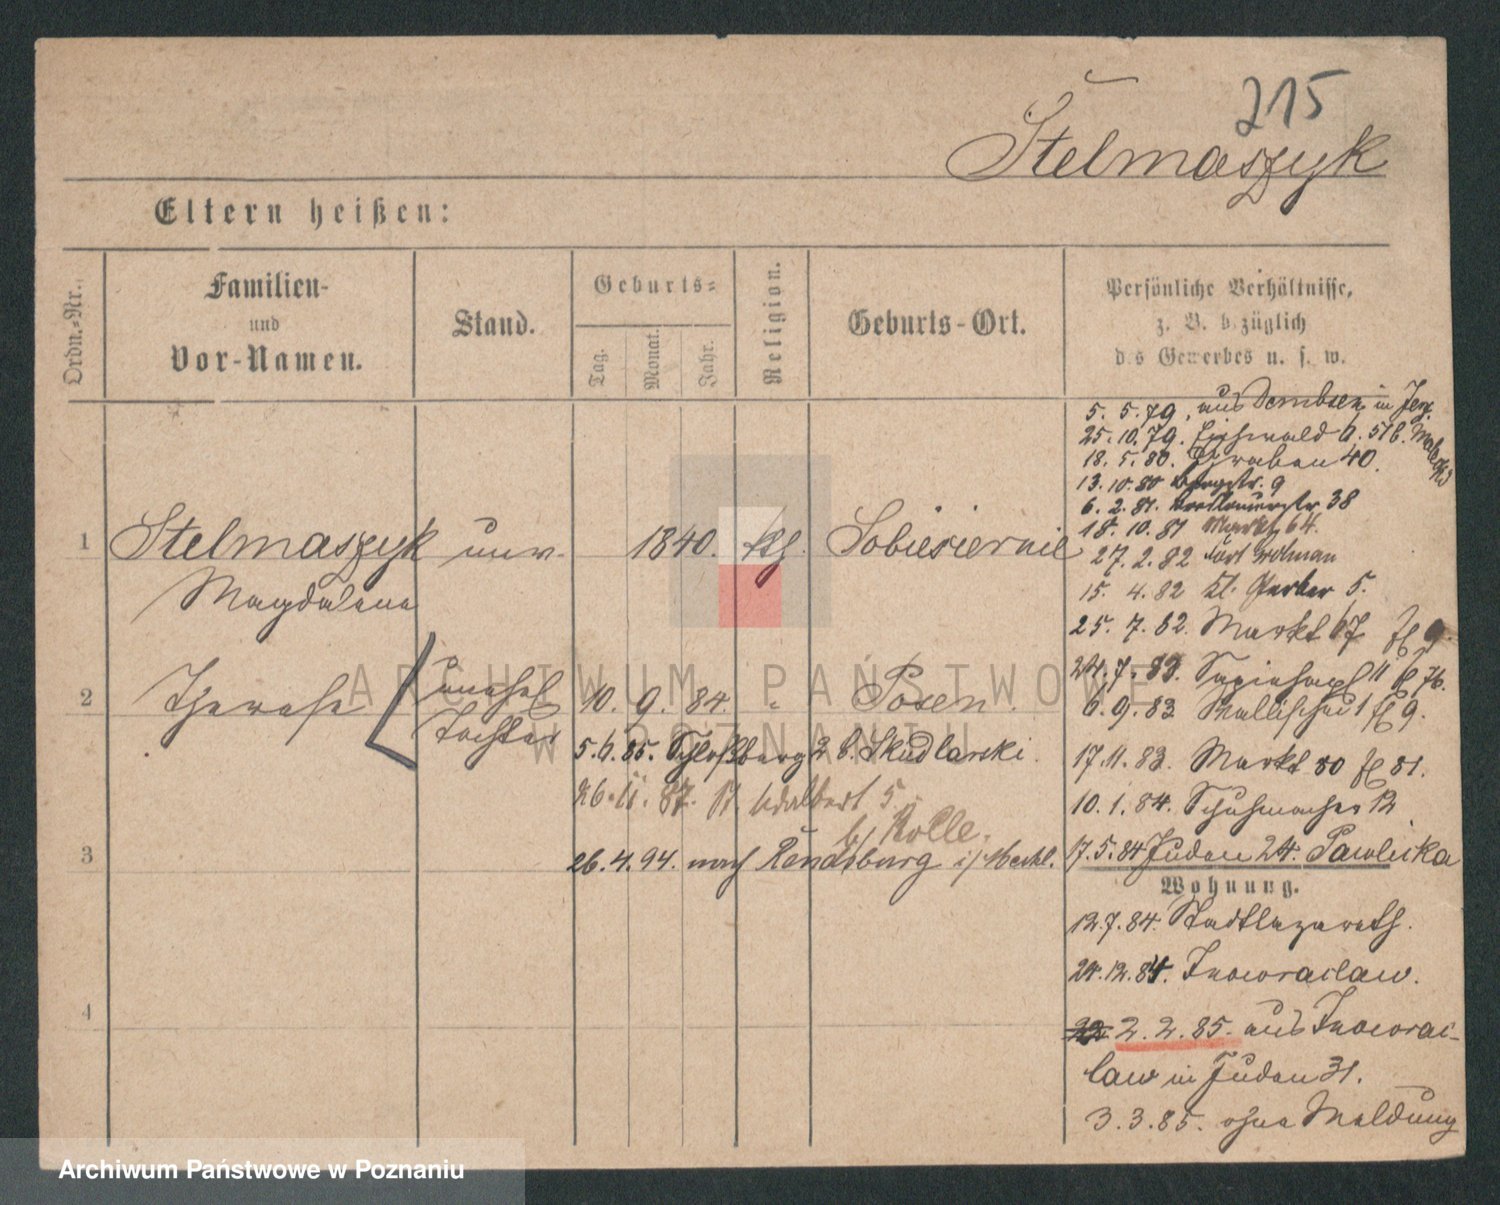 215
Stelmaszyk
Eltern heißen:
Ordn.-Nr.
Familien-
und
Vor-Namen.
Stand.
Geburts-
Tag.
Monat.
Jahr.
Religion.
Geburts-Ort.
Persönliche Verhältnisse,
z. B. bezüglich
des Gewerbes u. s. w.
1
Stelmaszyk
Magdalena
unv.
1840.
kth.
Sobiesiernie
2
Therese
unehel
Tochter
10. 9. 84. "
Posen.
5.6.85. Schloßberg 2 b. Skudlarski.
26.11.87. St Adalbert 5.
b/ Rolle.
26.4.94. nach Rendsburg i/
3
4
5. 5. 79. aus Dembsen in Jerz.
25. 10. 79. Eichwald
18. 5. 80. Graben 40.
13. 10. 80 Bergstr. 9
6. 2. 81. Breslauerstr 38
18. 10. 81 Markt 64.
27. 2. 82 Fort
15. 4. 82 Kl. Gerber 5.
25. 7. 82. Markt 67
24. 7. 83. Sapiehapl 11
6. 9. 83. Wallischei 1
17. 11. 83. Markt 80
10. 1. 84. Schuhmacher 12
17. 5. 84 Juden 24. Pawlicka
Wohnung.
12.7.84. Stadtlazareth.
24.12.84. Inowraclaw.
2.2.85. aus Inowrac-
law in Juden 31.
3.3.85. ohne Meldung
ARCHIWUM PAŃSTWOWE
W POZNANIU
Archiwum Państwowe w Poznaniu